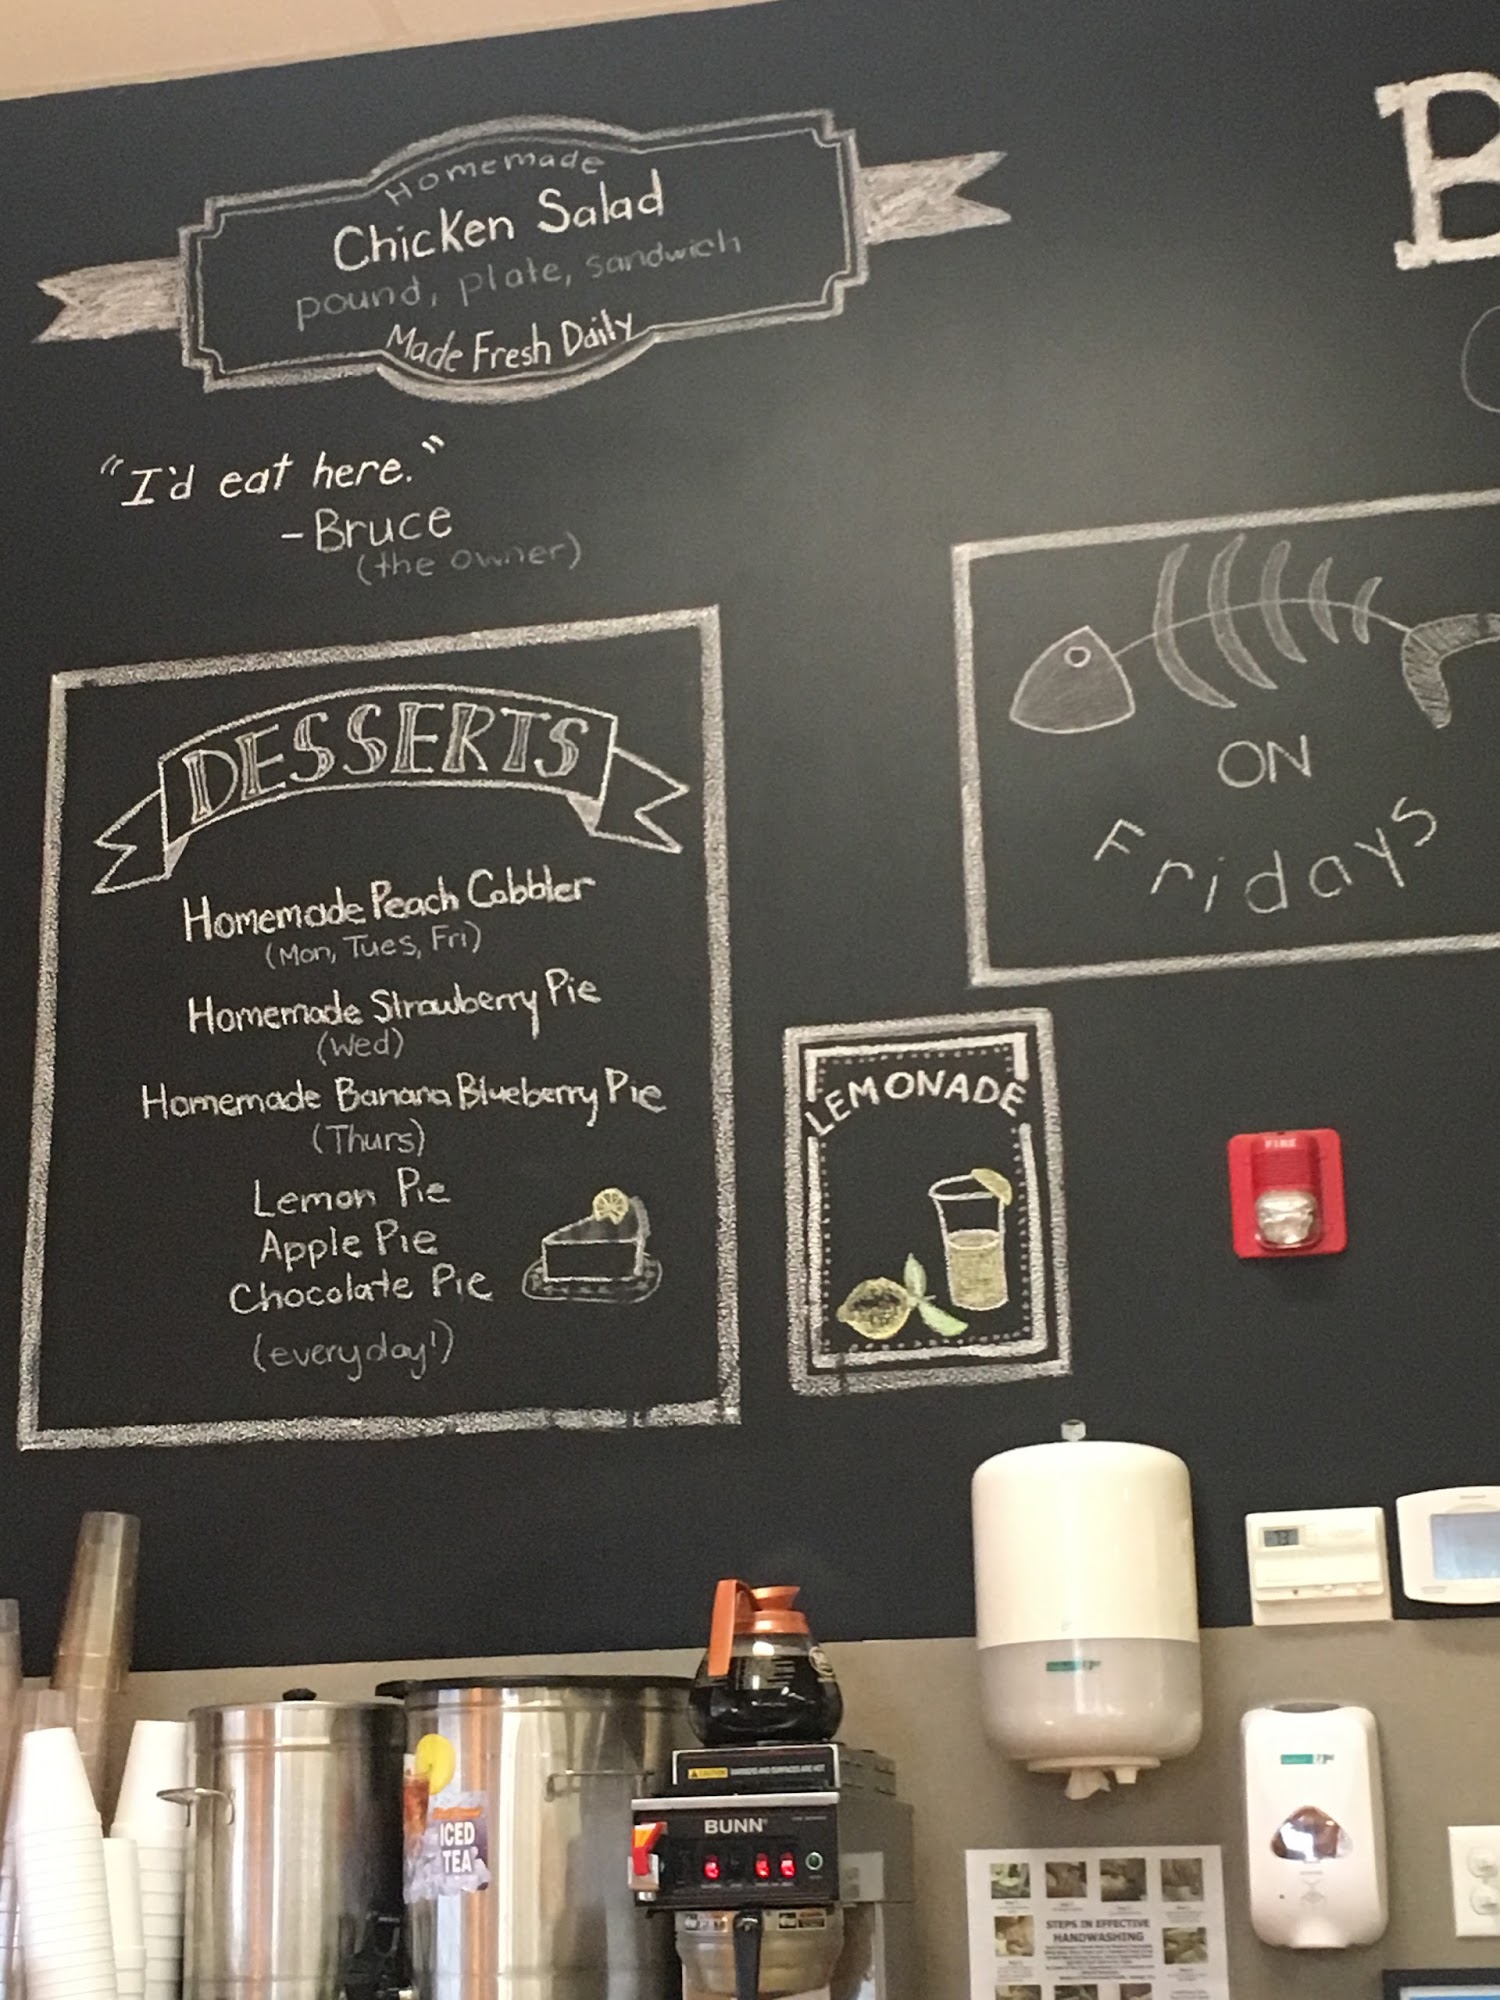 Homemade
Chicken Salad
pound, plate, sandwich
Made Fresh Daily
"I'd eat here."
-Bruce
(the owner)
DESSERTS
Homemade Peach Cobbler
(Mon, Tues, Fri)
Homemade Strawberry Pie
(Wed)
Homemade Banana Blueberry Pie
(Thurs)
Lemon Pie
Apple Pie
Chocolate Pie
(everyday!)
B
ON
Fridays
LEMONADE
FIRE
ICED
TEA
CAUTION
BUNN
STEPS IN EFFECTIVE
HANDWASHING